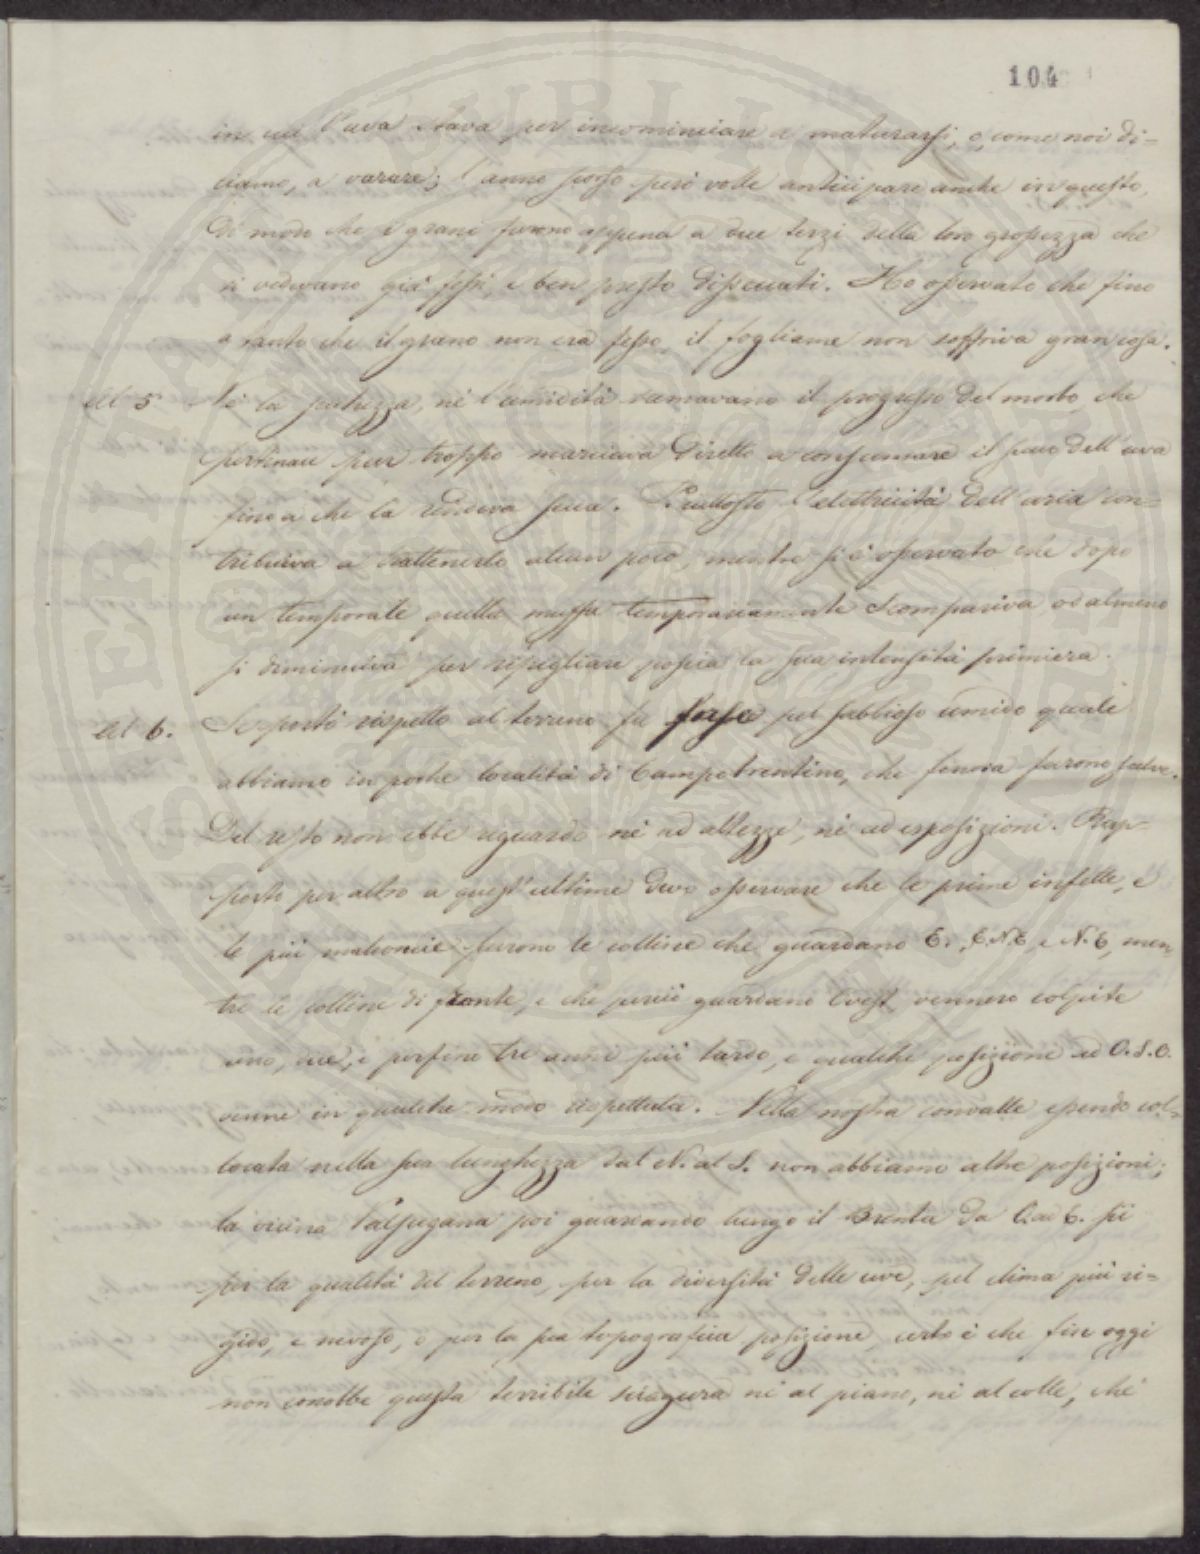 104
in cui l'uva stava per incominciare a maturarsi, o, come noi di-
ciamo, a varare; l'anno scorso però volle anticipare anche in questo,
di modo che i grani furono appena a due terzi della loro grossezza che
si vedevano già fessi, e ben presto dissecati. Ho osservato che fino
a tanto che il grano non era fesso, il fogliame non soffriva gran cosa.
Al 5 Nè la secchezza, nè l'umidità scemavano il progresso del morbo, che
pertinace pur troppo marciava diretto a consumare il suco dell'uva
fino a che la rendeva secca. Piuttosto l'elettricità dell'aria con-
tribuiva a trattenerlo alcun poco, mentre si è osservato che dopo
un temporale quella muffa temporariamente scompariva od almeno
si diminuiva per ripigliare poscia la sua intensità primiera.
Al 6. Se portò rispetto al terreno fu forse pel sabbioso umido quale
abbiamo in poche località di Campotrentino, che finora furono salve.
Del resto non ebbe riguardo nè ad altezze, nè ad esposizioni. Rap-
porto per altro a quest'ultime devo osservare che le prime infette, e
le più malconcie furono le colline che guardano E., E.N.E. e N.E, men-
tre le colline di fronte, e che perciò guardano Ovest vennero colpite
uno, due, e perfino tre anni più tardo, e qualche posizione ad O.S.O.
venne in qualche modo rispettata. Nella nostra convalle essendo col-
locata nella sua lunghezza dal N. al S. non abbiamo altre posizioni;
la vicina Valsugana poi guardando lungo il Brenta da O. ad E. sii
per la qualità del terreno, per la diversità delle uve, pel clima più ri-
gido, e nevoso, o per la sua topografica posizione, certo è che fin oggi
non conobbe questa terribile sciagura nè al piano, nè al colle, che